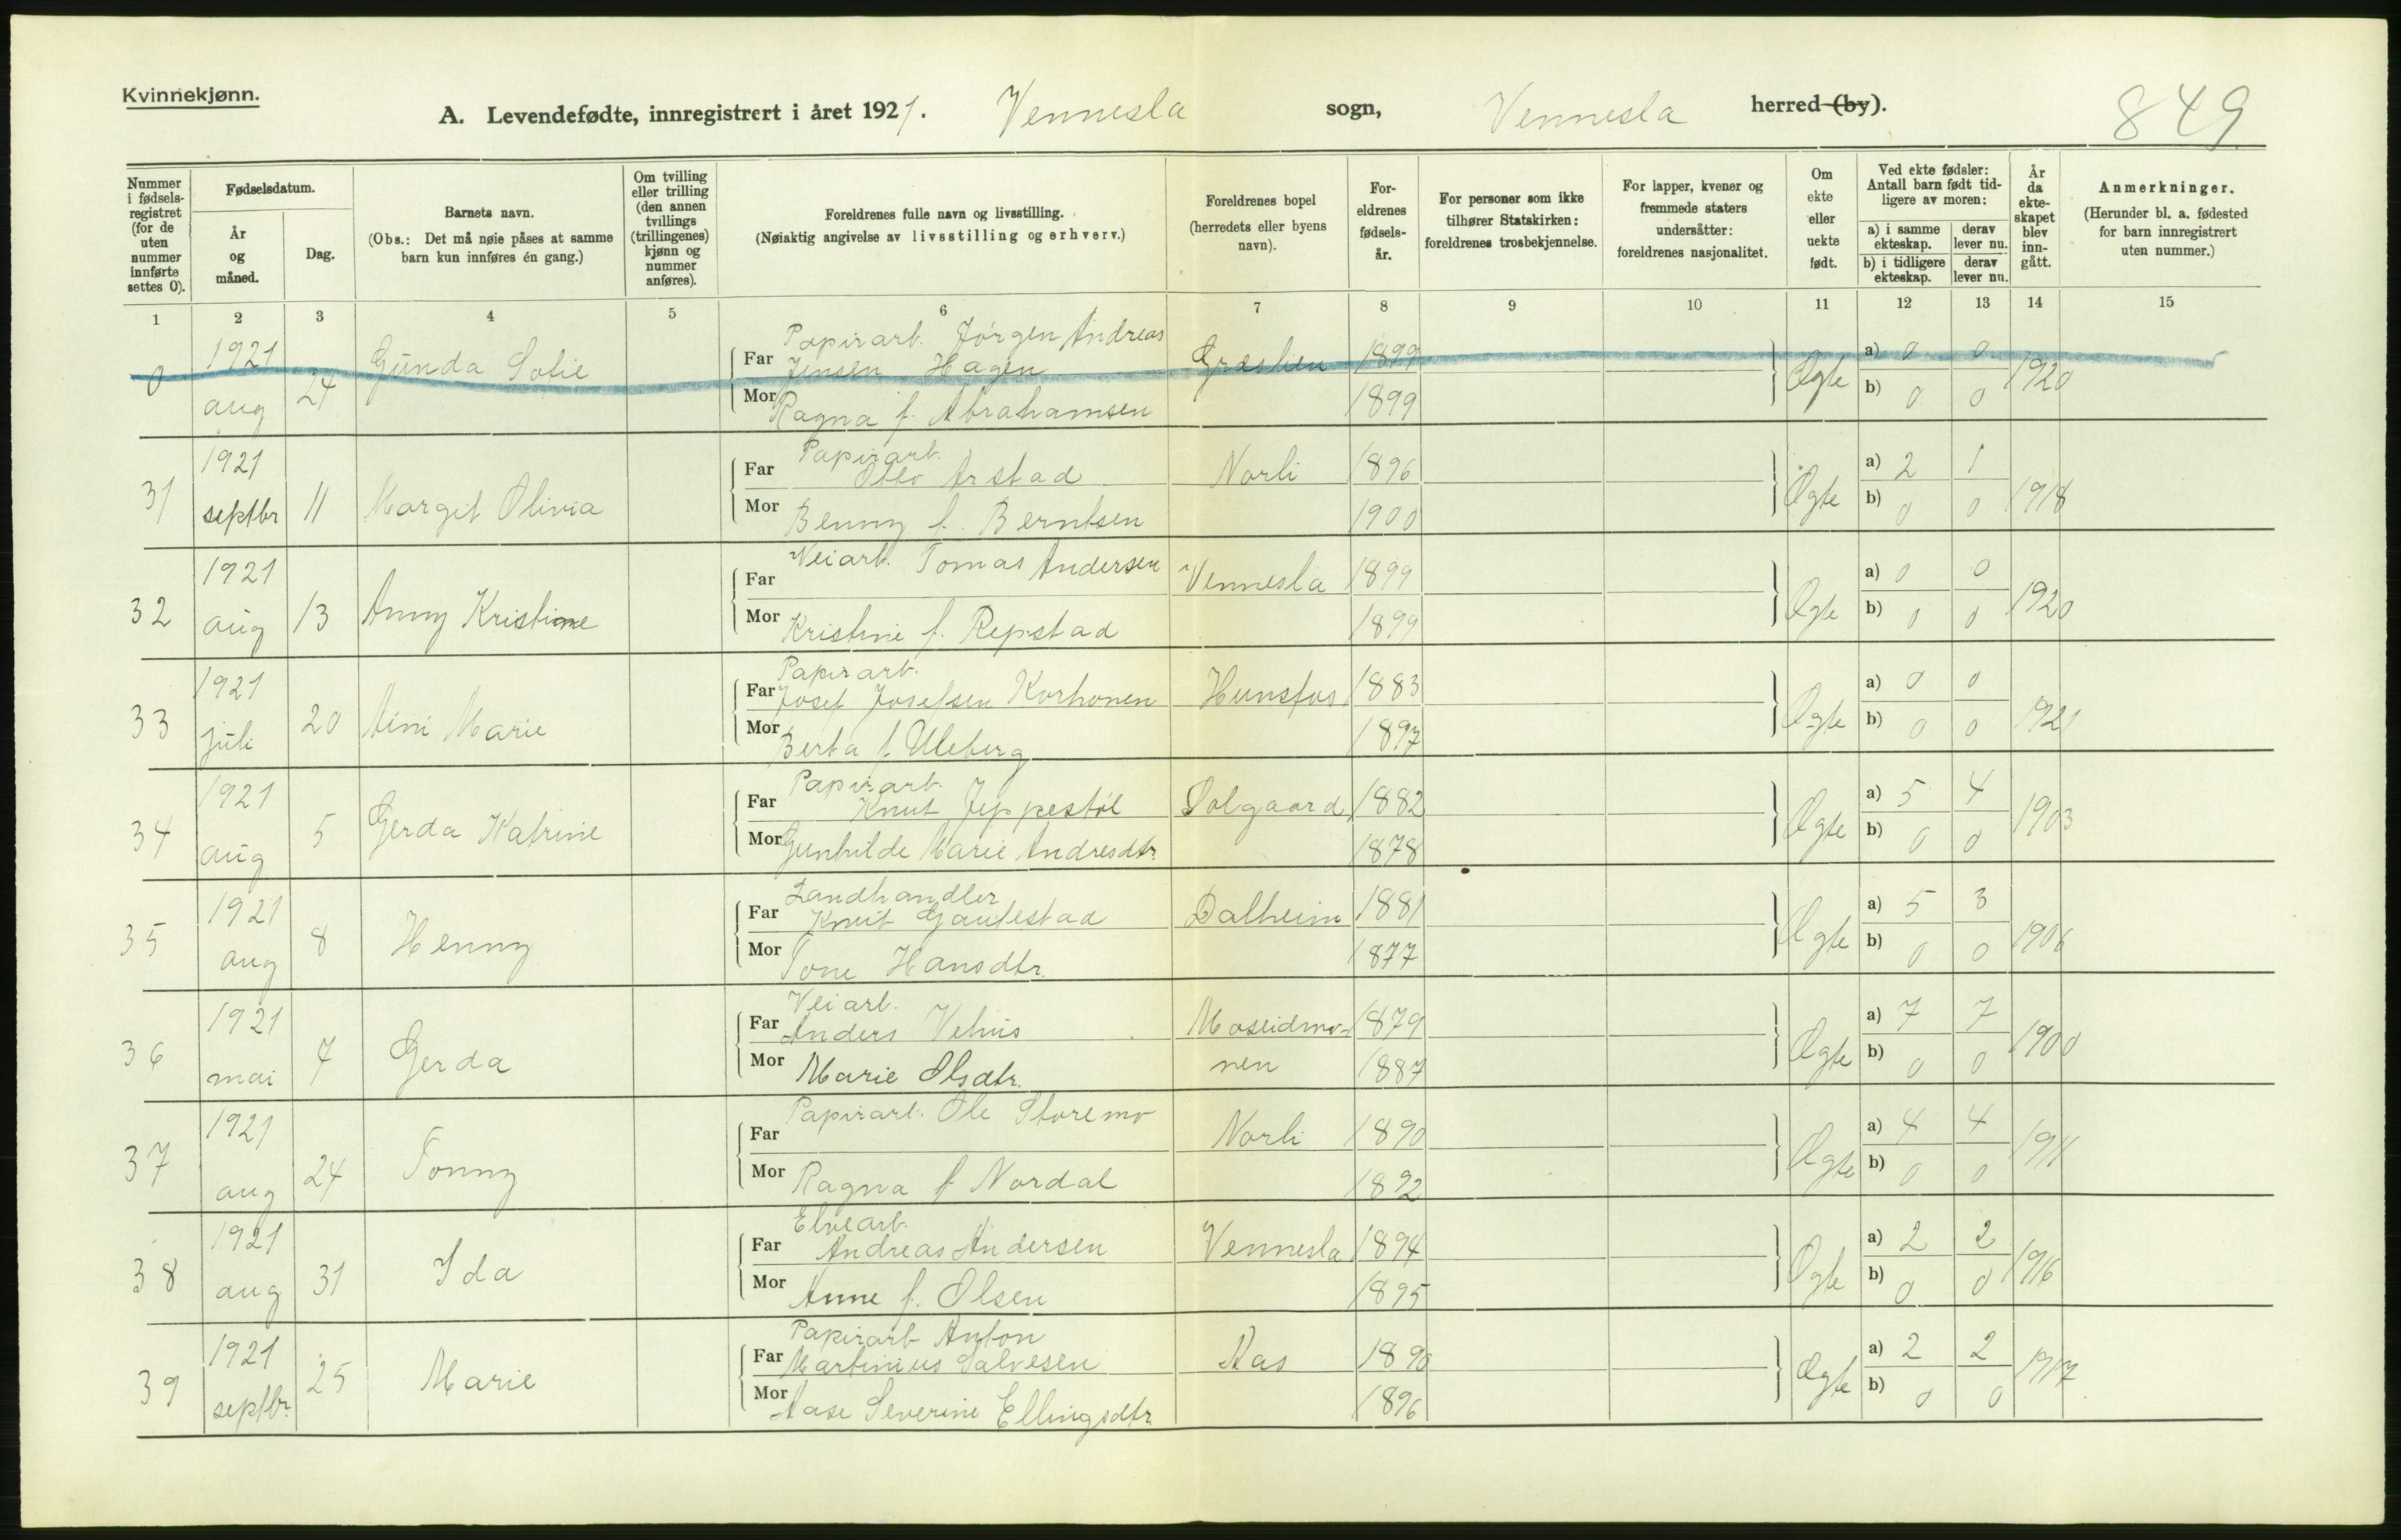 Kvinnekjønn.
A. Levendefødte, innregistrert i året 1921. Vennesla sogn, Vennesla herred (by).
849
Nummer i fødsels-registret (for de uten nummer innførte settes 0).
Fødselsdatum.
År og måned.
Dag.
Barnets navn.
(Obs.: Det må nøie påses at samme barn kun innføres én gang.)
Om tvilling eller trilling (den annen tvillings (trillingenes) kjønn og nummer anføres).
Foreldrenes fulle navn og livsstilling.
(Nøiaktig angivelse av livsstilling og erhverv.)
Foreldrenes bopel (herredets eller byens navn).
For-eldrenes fødsels-år.
For personer som ikke tilhører Statskirken: foreldrenes trosbekjennelse.
For lapper, kvener og fremmede staters undersåtter: foreldrenes nasjonalitet.
Om ekte eller uekte født.
Ved ekte fødsler: Antall barn født tid-ligere av moren:
a) i samme ekteskap.
derav lever nu.
b) i tidligere ekteskap.
derav lever nu.
År da ekte-skapet blev inn-gått.
Anmerkninger.
(Herunder bl. a. fødested for barn innregistrert uten nummer.)
1 2 3 4 5 6 7 8 9 10 11 12 13 14 15
0 1921 aug 24 Gunda Sofie
Papirarb. Jörgen Andreas
Far Jensen Hagen 1899
Mor Ragna f. Abrahamsen 1899
Ægte a) 0 0 b) 0 0 1920
31 1921 septbr 11 Margit Olivia
Papirarb.
Far Olav Arstad Norli 1896
Mor Benny f. Berntsen 1900
Ægte a) 2 1 b) 0 0 1918
32 1921 aug 13 Anny Kristine
Far Veiarb. Tomas Andersen Vennesla 1899
Mor Kristine f. Repstad 1899
Ægte a) 0 0 b) 0 0 1920
33 1921 juli 20 Aini Marie
Papirarb.
Far Josef Josefsen Korhonen Hunsfos 1883
Mor Berta f. Uleberg 1897
Ægte a) 0 0 b) 0 0 1921
34 1921 aug 5 Gerda Katrine
Papirarb.
Far Knut Jeppestöl Solgaard 1882
Mor Gunhilde Marie Andresdtr. 1878
Ægte a) 5 4 b) 0 0 1903
35 1921 aug 8 Henny
Landhandler
Far Knut Gautestad Dalheim 1881
Mor Tone Hansdtr. 1877
Ægte a) 5 3 b) 0 0 1906
36 1921 mai 7 Gerda
Veiarb.
Far Anders Vehus Moseidmo- 1879
Mor Marie Olsdtr. nen 1887
Ægte a) 7 7 b) 0 0 1900
37 1921 aug 24 Tonny
Far Papirarb. Ole Storemo Norli 1890
Mor Ragna f. Nordal 1892
Ægte a) 4 4 b) 0 0 1911
38 1921 aug 31 Ida
Elvearb.
Far Andreas Andersen Vennesla 1894
Mor Anne f. Olsen 1895
Ægte a) 2 2 b) 0 0 1916
39 1921 septbr. 25 Marie
Papirarb Anton
Far Martinius Salvesen Aas 1890
Mor Aase Severine Ellingsdtr. 1896
Ægte a) 2 2 b) 0 0 1917